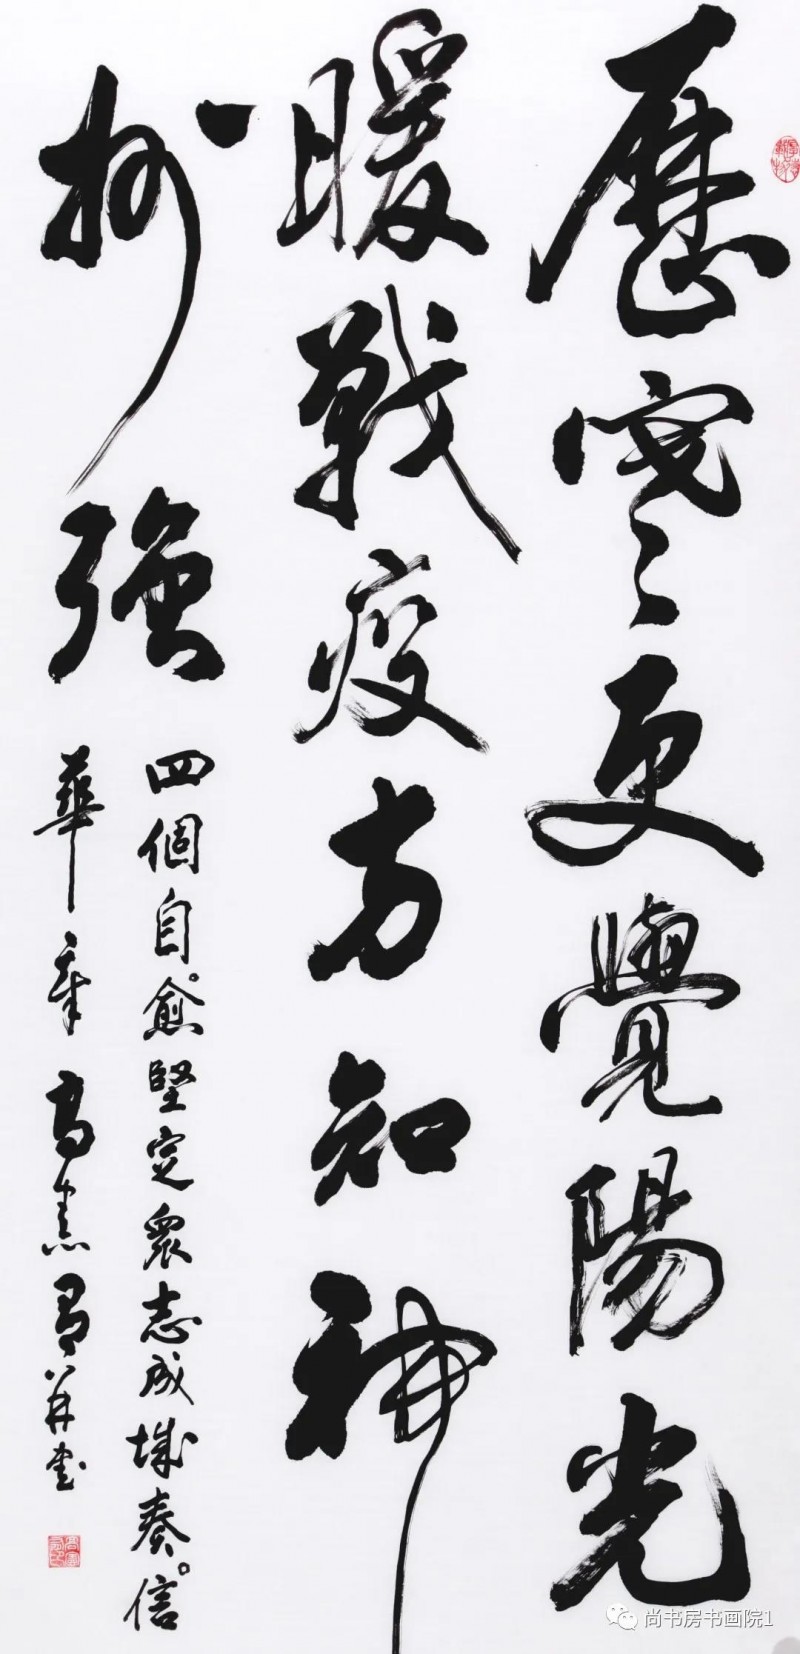 歷寒更覺陽光
暖戰疫方知神
州強
四個自。愈堅定衆志成城奏。信
華章高并書
尚书房书画院1